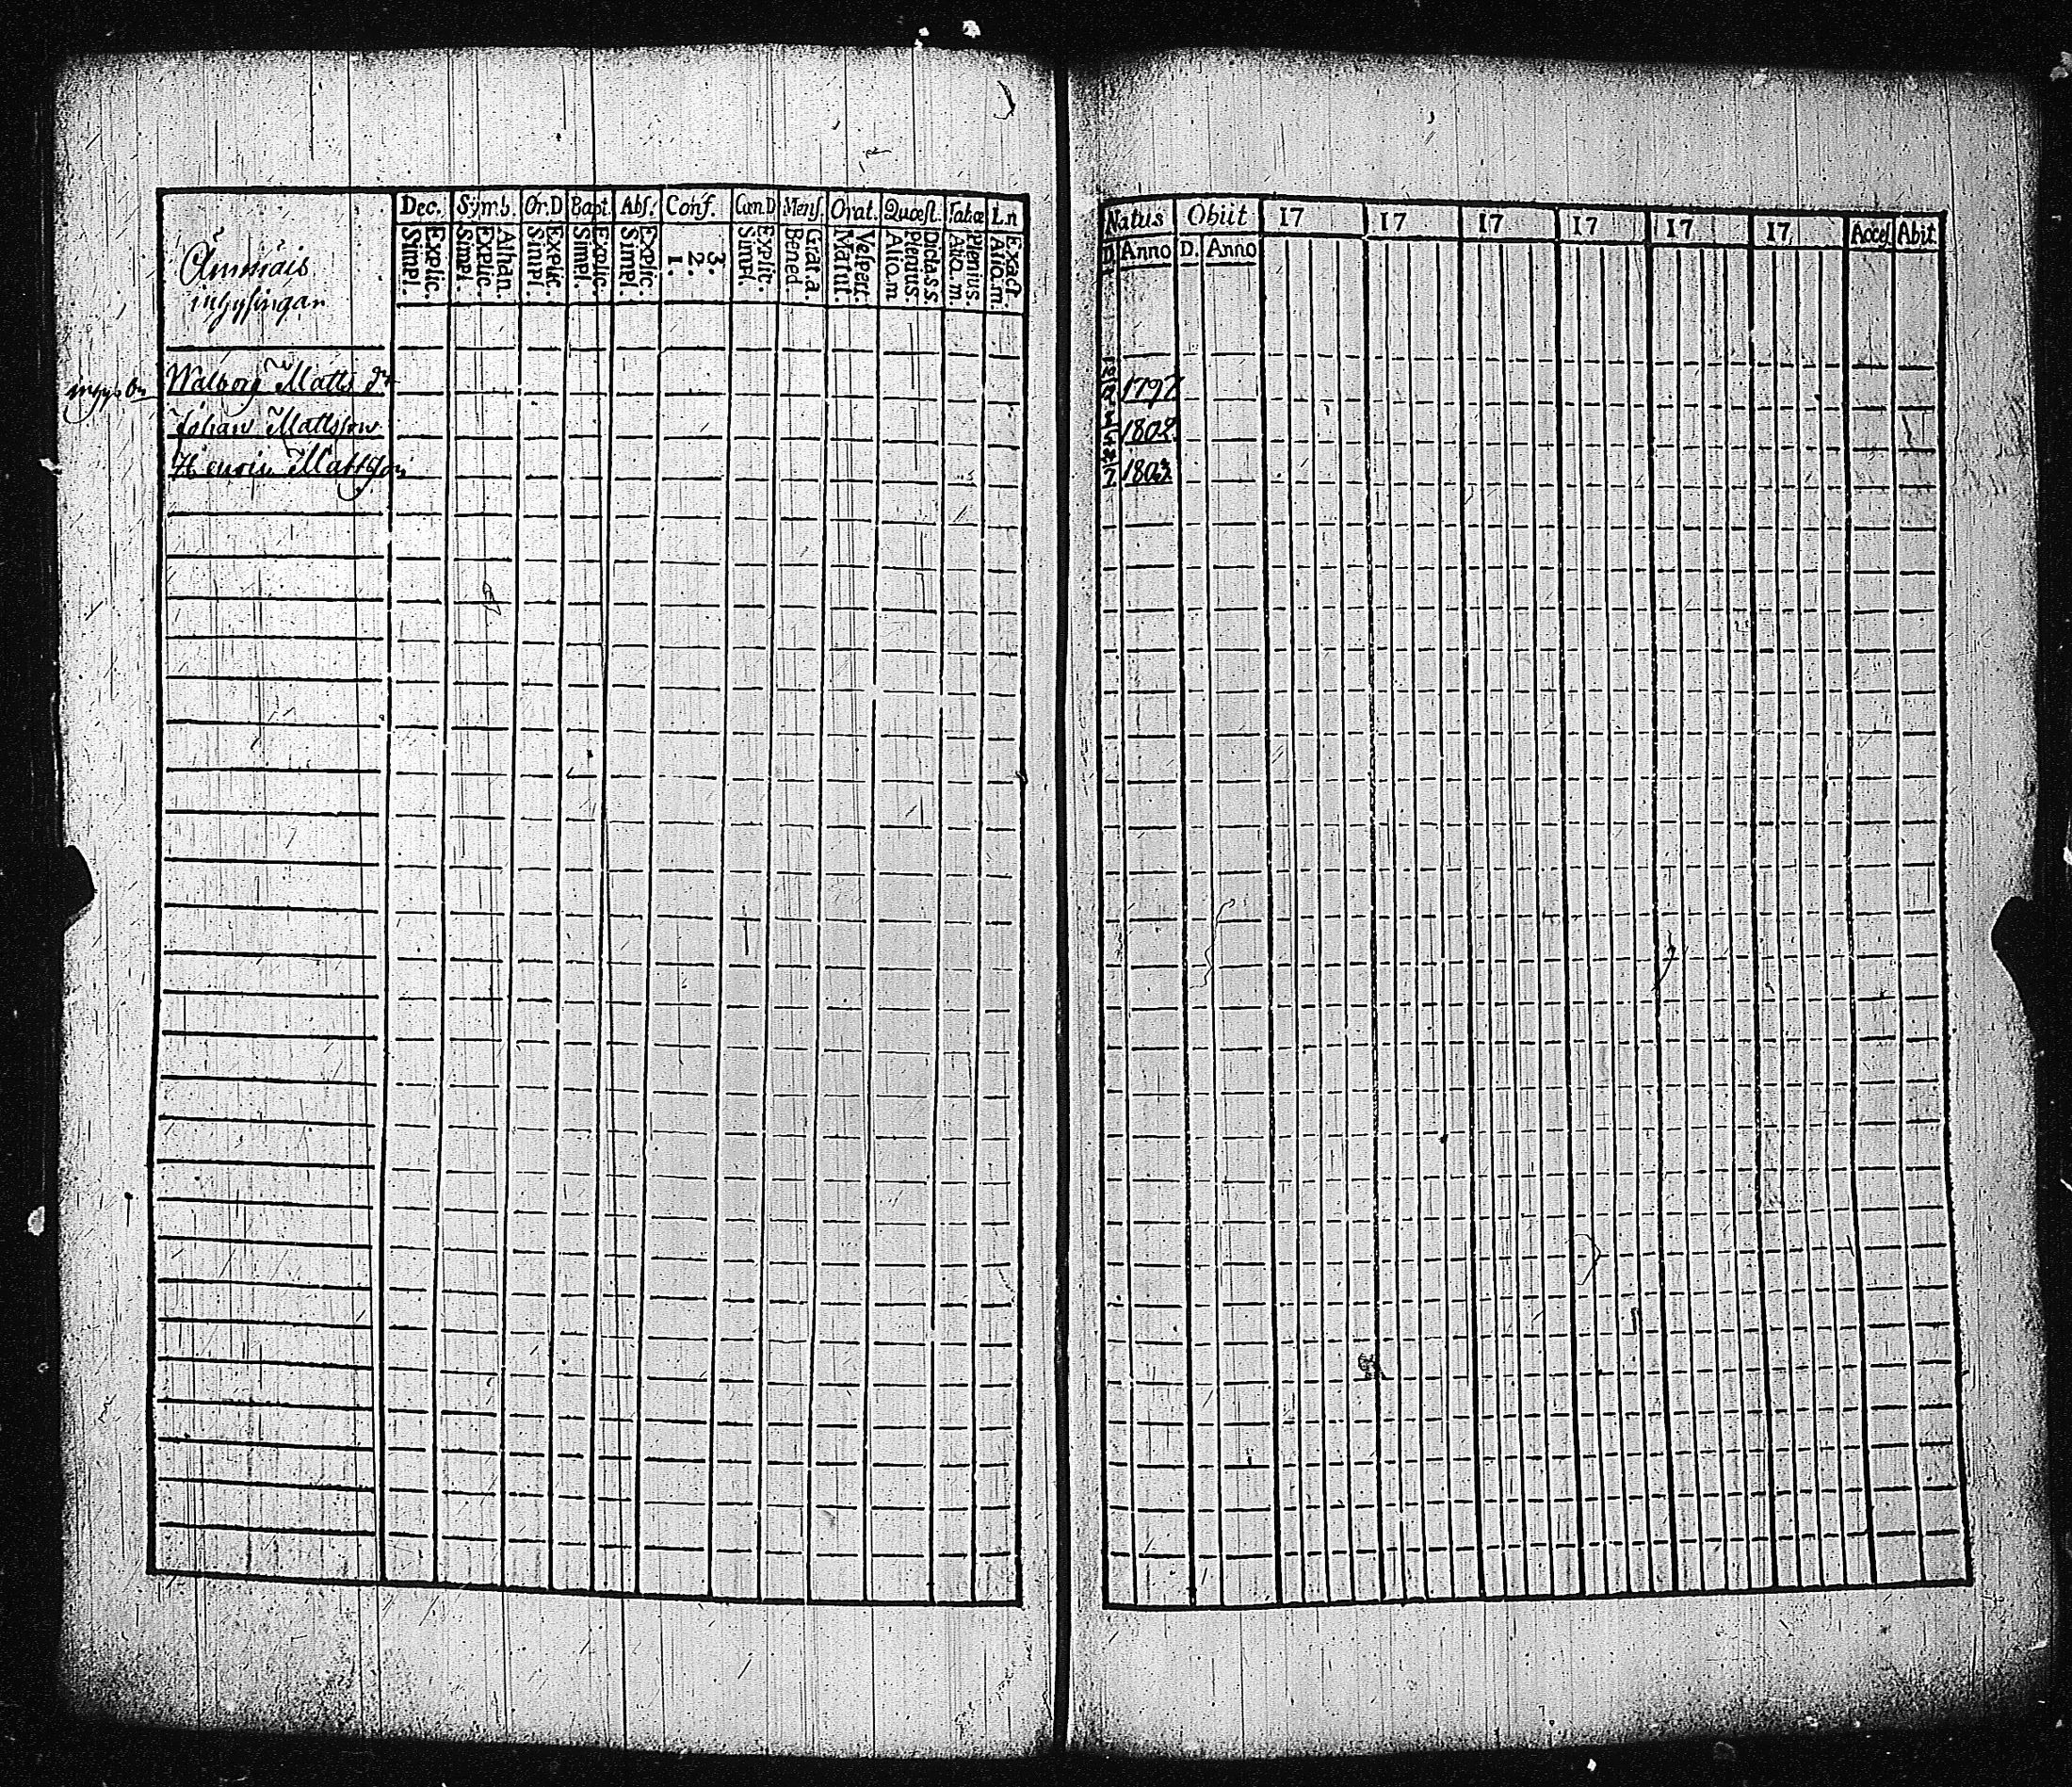 Dec. Symb. Or.D Bapt. Abs. Conf. Cœn.D Mens. Orat. Quæst. Tabœ L.n
Explic. Simpl. Athan. Explic. Simpl. Explic. Simpl. Explic. Simpl. Explic. Simpl. 3. 2. 1. Explic. Simpl. Grat.a. Bened. Vespert. Matut. Dicta.s.s. Plenius. Alio.m. Plenius. Alio.m. Exact. Alio.m.
inhysingar
Walborg Matts dr
Johan Mattsson
Henric Mattsson
Natus Obiit 17 17 17 17 17 17 Acces Abit
D. Anno D. Anno
1797
1802
1803